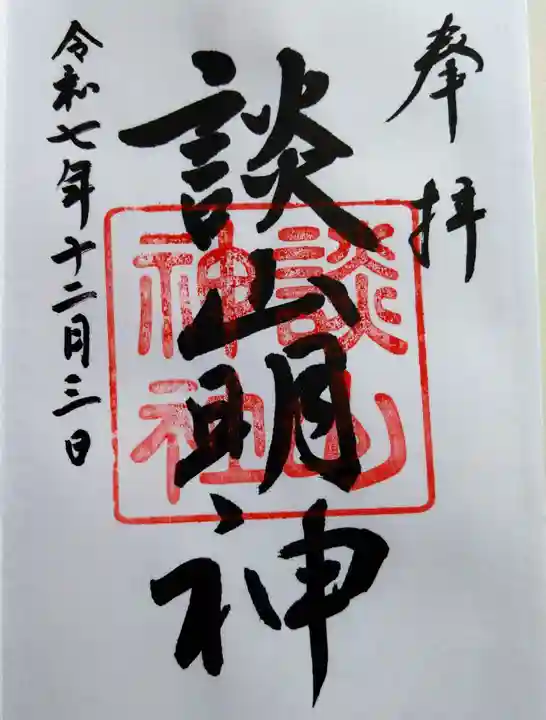 奉拝
談山明神
談山
神社
令和七年十二月三日